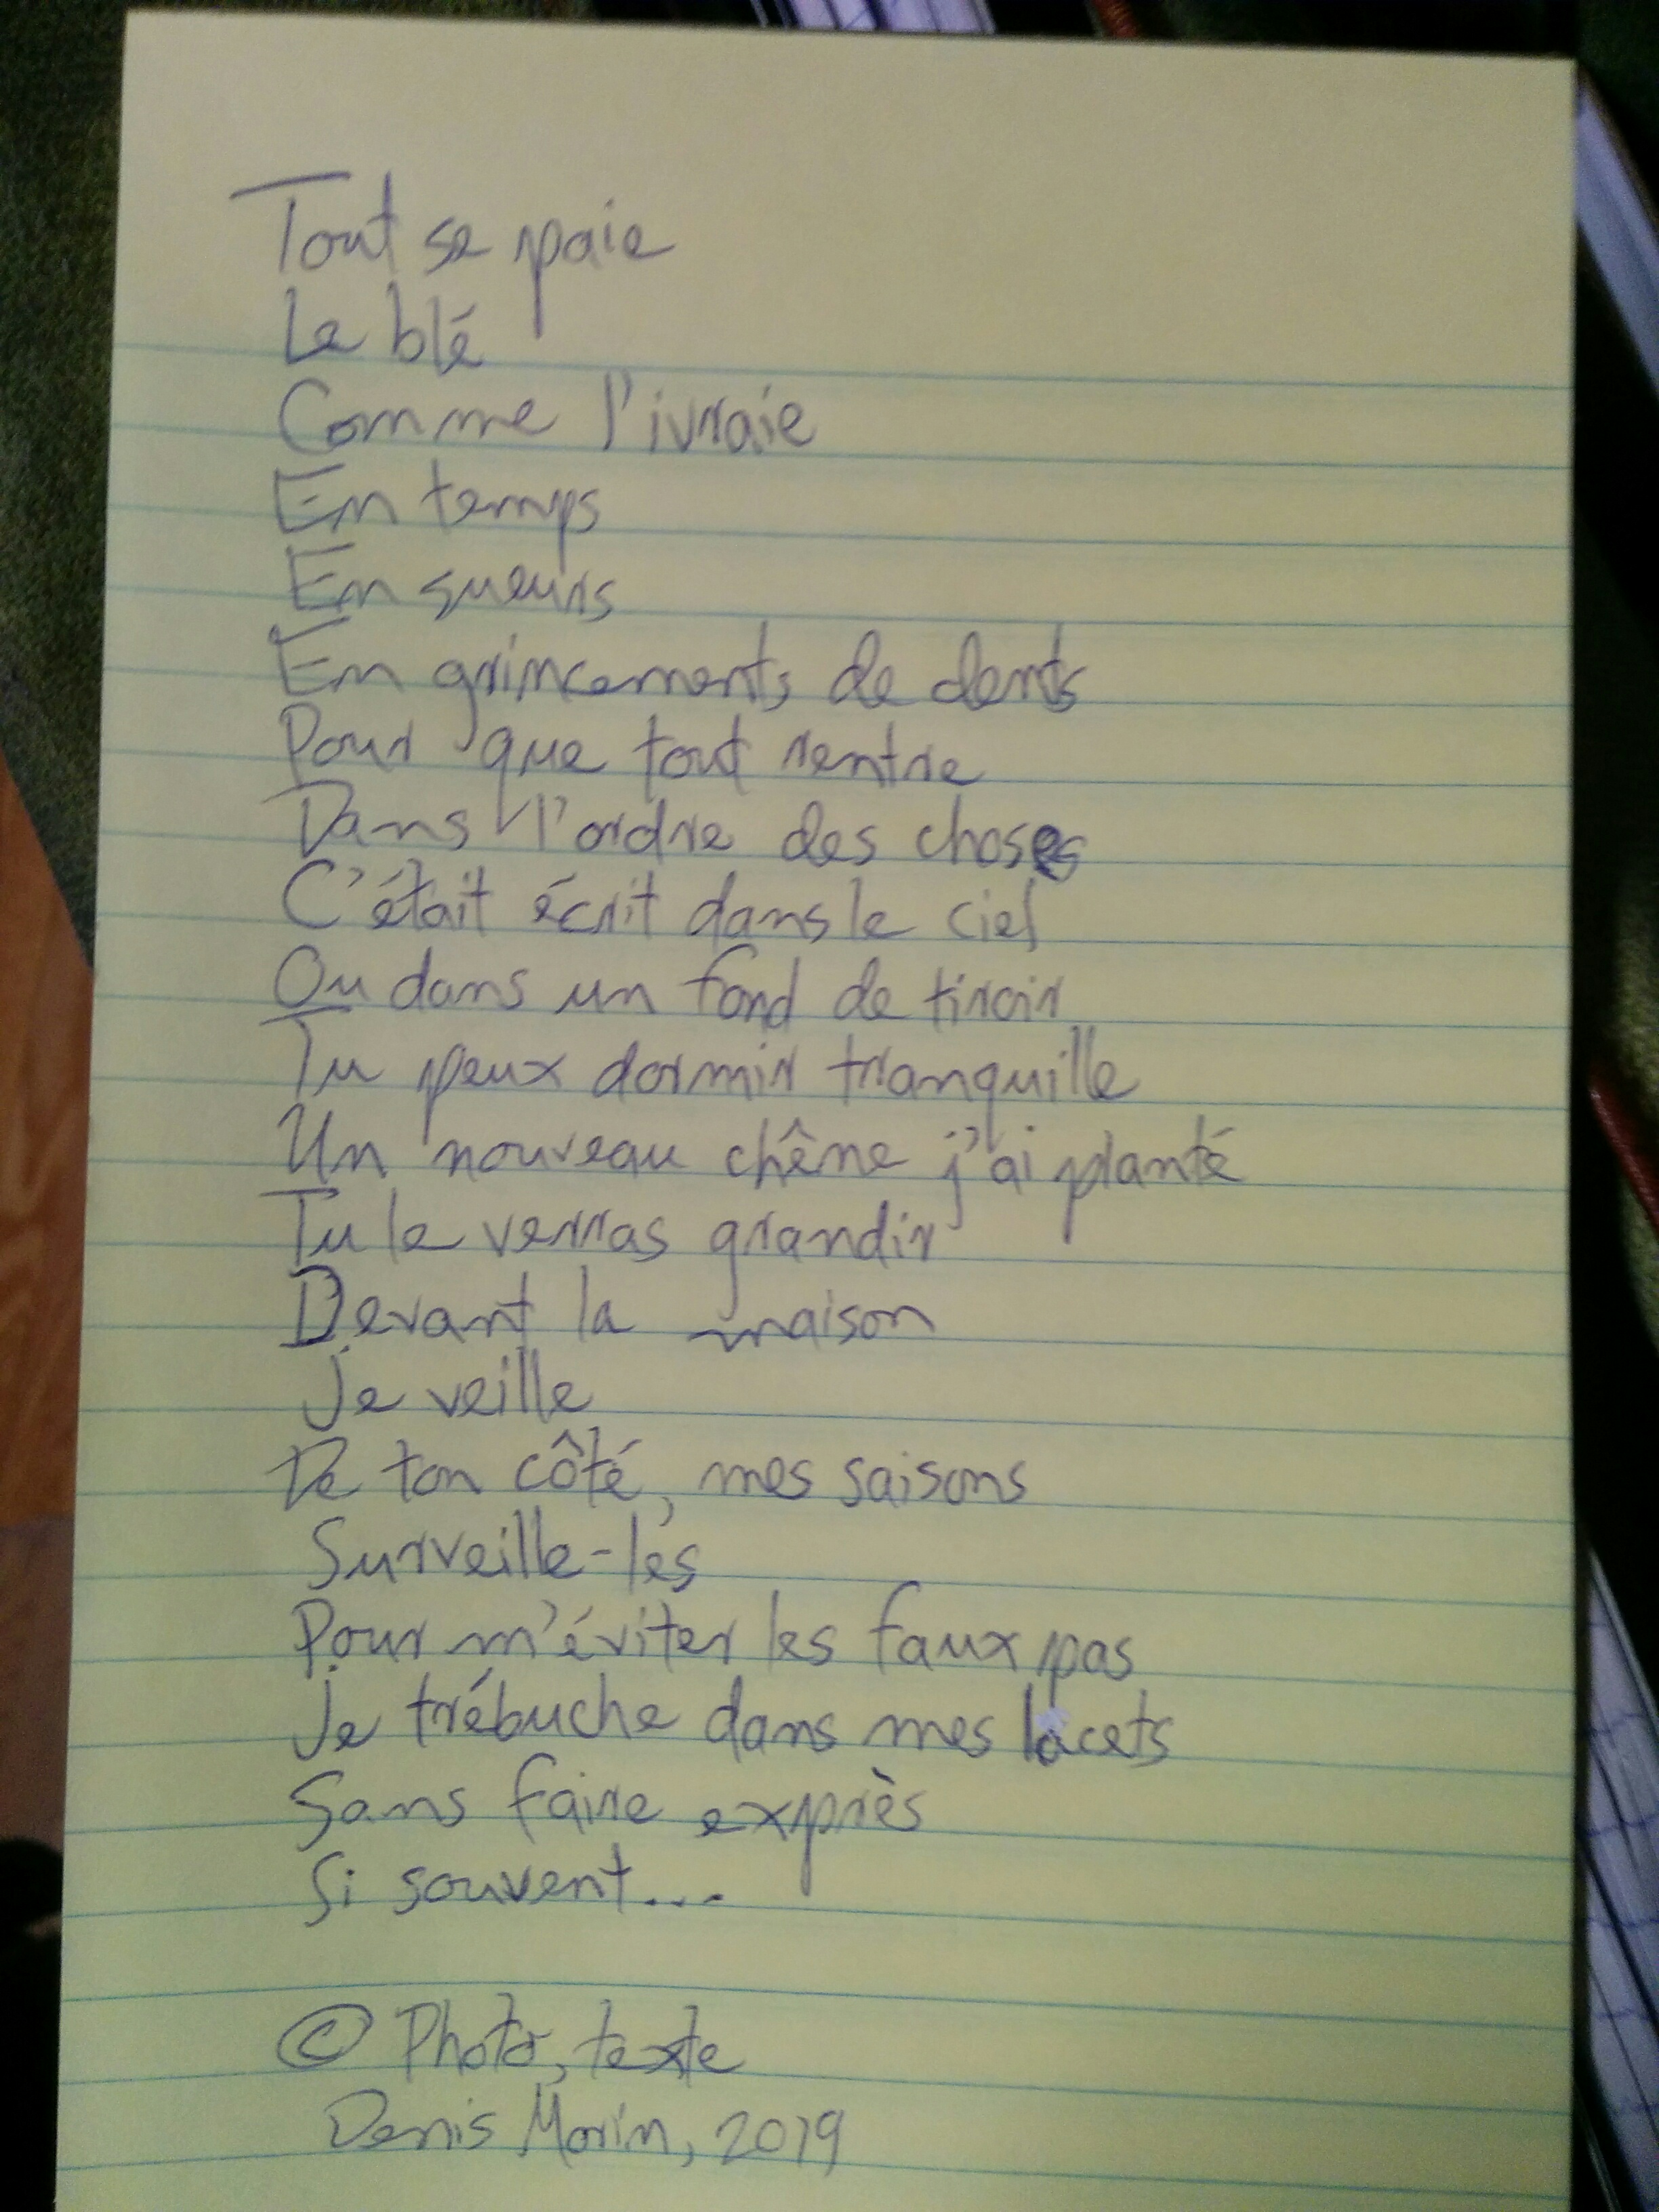 Tout se paie
Le blé
Comme l'ivraie
En temps
En sueurs
En grincements de dents
Pour que tout rentre
Dans l'ordre des choses
C'était écrit dans le ciel
Ou dans un fond de tiroir
Tu peux dormir tranquille
Un nouveau chêne j'ai planté
Tu le verras grandir
Devant la maison
Je veille
De ton côté, mes saisons
Surveille-les
Pour m'éviter les faux pas
Je trébuche dans mes lacets
Sans faire exprès
Si souvent...
© Photo, texte
Denis Morin, 2019